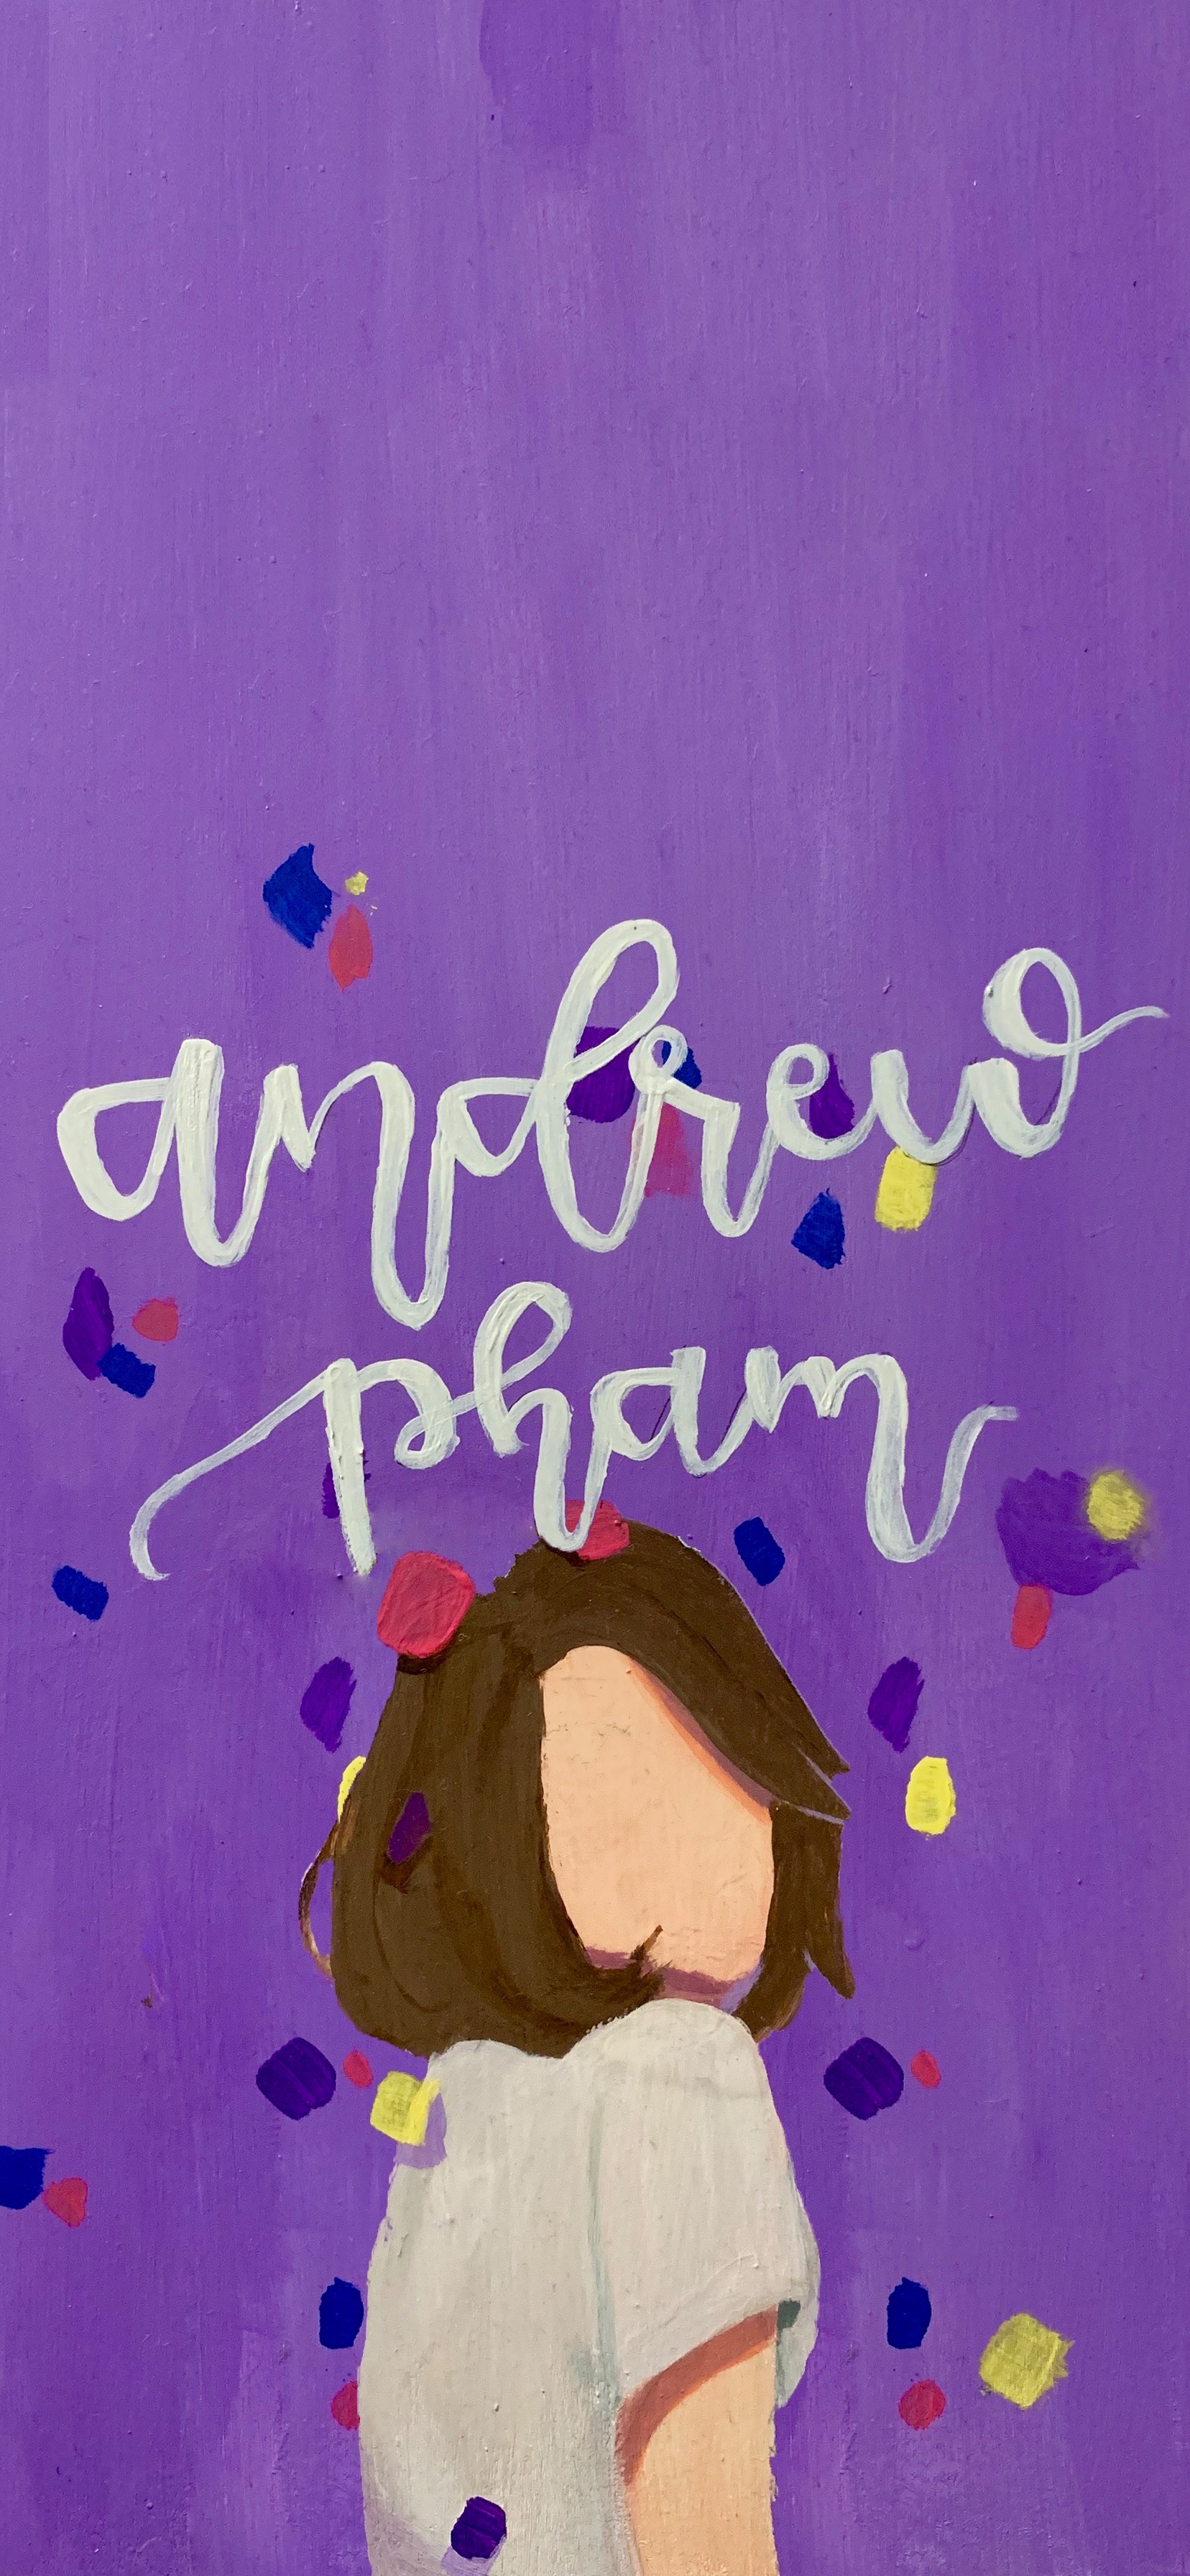 andrew
pham